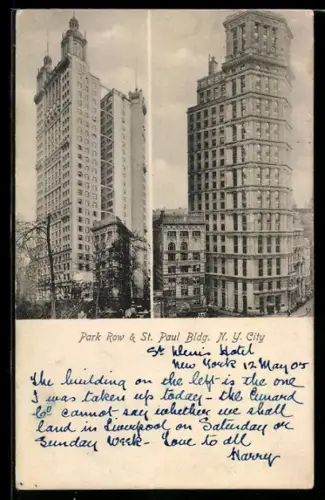 Park Row & St. Paul Bldg. N. Y. City
St Denis Hotel
New York 12 May 05
The building on the left is the one
I was taken up today - the Cunard
Co cannot say whether we shall
land in Liverpool on Saturday or
Sunday week - Love to all
Harry